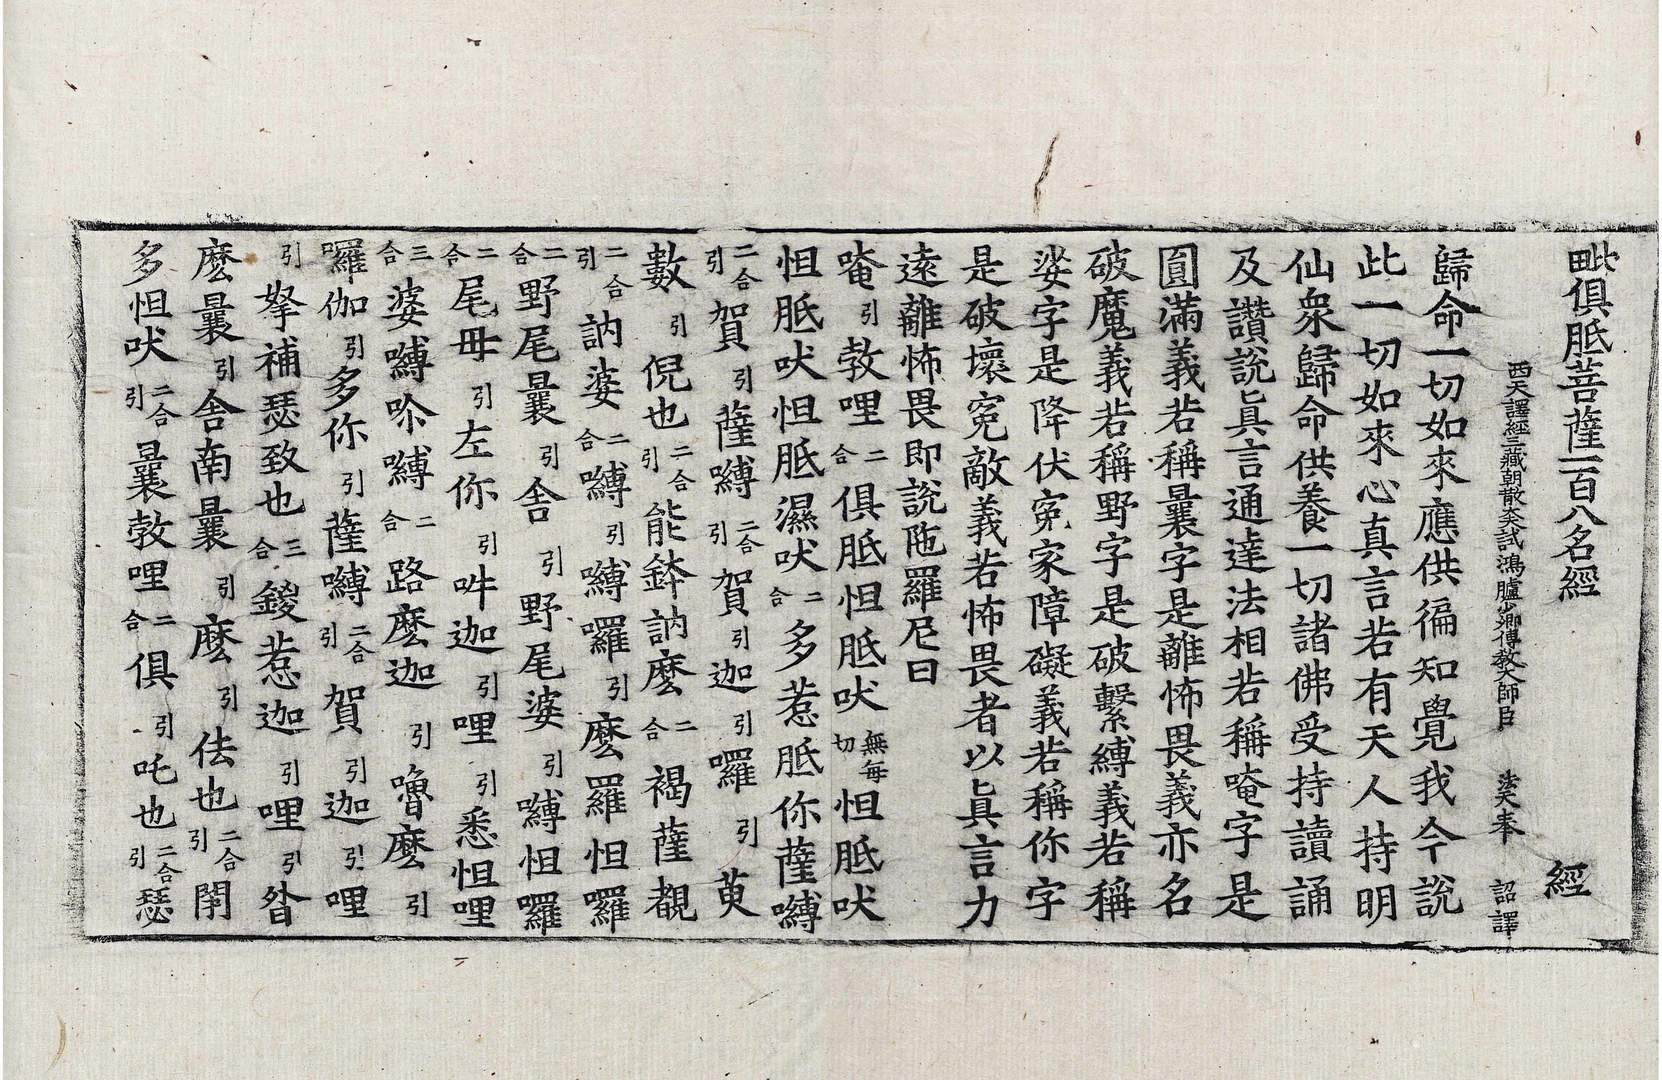 毗俱胝菩薩一百八名經　經
西天譯經三藏朝散大夫試鴻臚少卿傳教大師臣　法天奉　詔譯
歸命一切如來應供徧知覺我今說
此一切如來心真言若有天人持明
仙衆歸命供養一切諸佛受持讀誦
及讚說真言通達法相若稱唵字是
圓滿義若稱曩字是離怖畏義亦名
破魔義若稱野字是破繫縛義若稱
娑字是降伏寃家障礙義若稱你字
是破壞寃敵義若怖畏者以真言力
遠離怖畏即說陁羅尼曰
唵引勃哩二合俱胝怛胝吠無每切怛胝吠
怛胝吠怛胝濕吠二合多惹胝你薩嚩
二合引賀引薩嚩二合引賀引迦引囉引萸
數引倪也二合引能鉢訥麼二合褐薩覩
二合引訥婆二合嚩引嚩囉引麼羅怛囉
二合野尾曩引舍引野尾婆引嚩怛囉
二合尾毋引左你引吽迦引哩引悉怛哩
三合婆嚩吤嚩二合路麼迦引嚕麼引
囉伽引多你引薩嚩二合引賀引迦引哩
引拏補瑟致也三合鍐惹迦引哩引昝
麼曩引舍南曩引麼引佉也二合引閉
多怛吠二合引曩勃哩二合俱引吒也二合引瑟